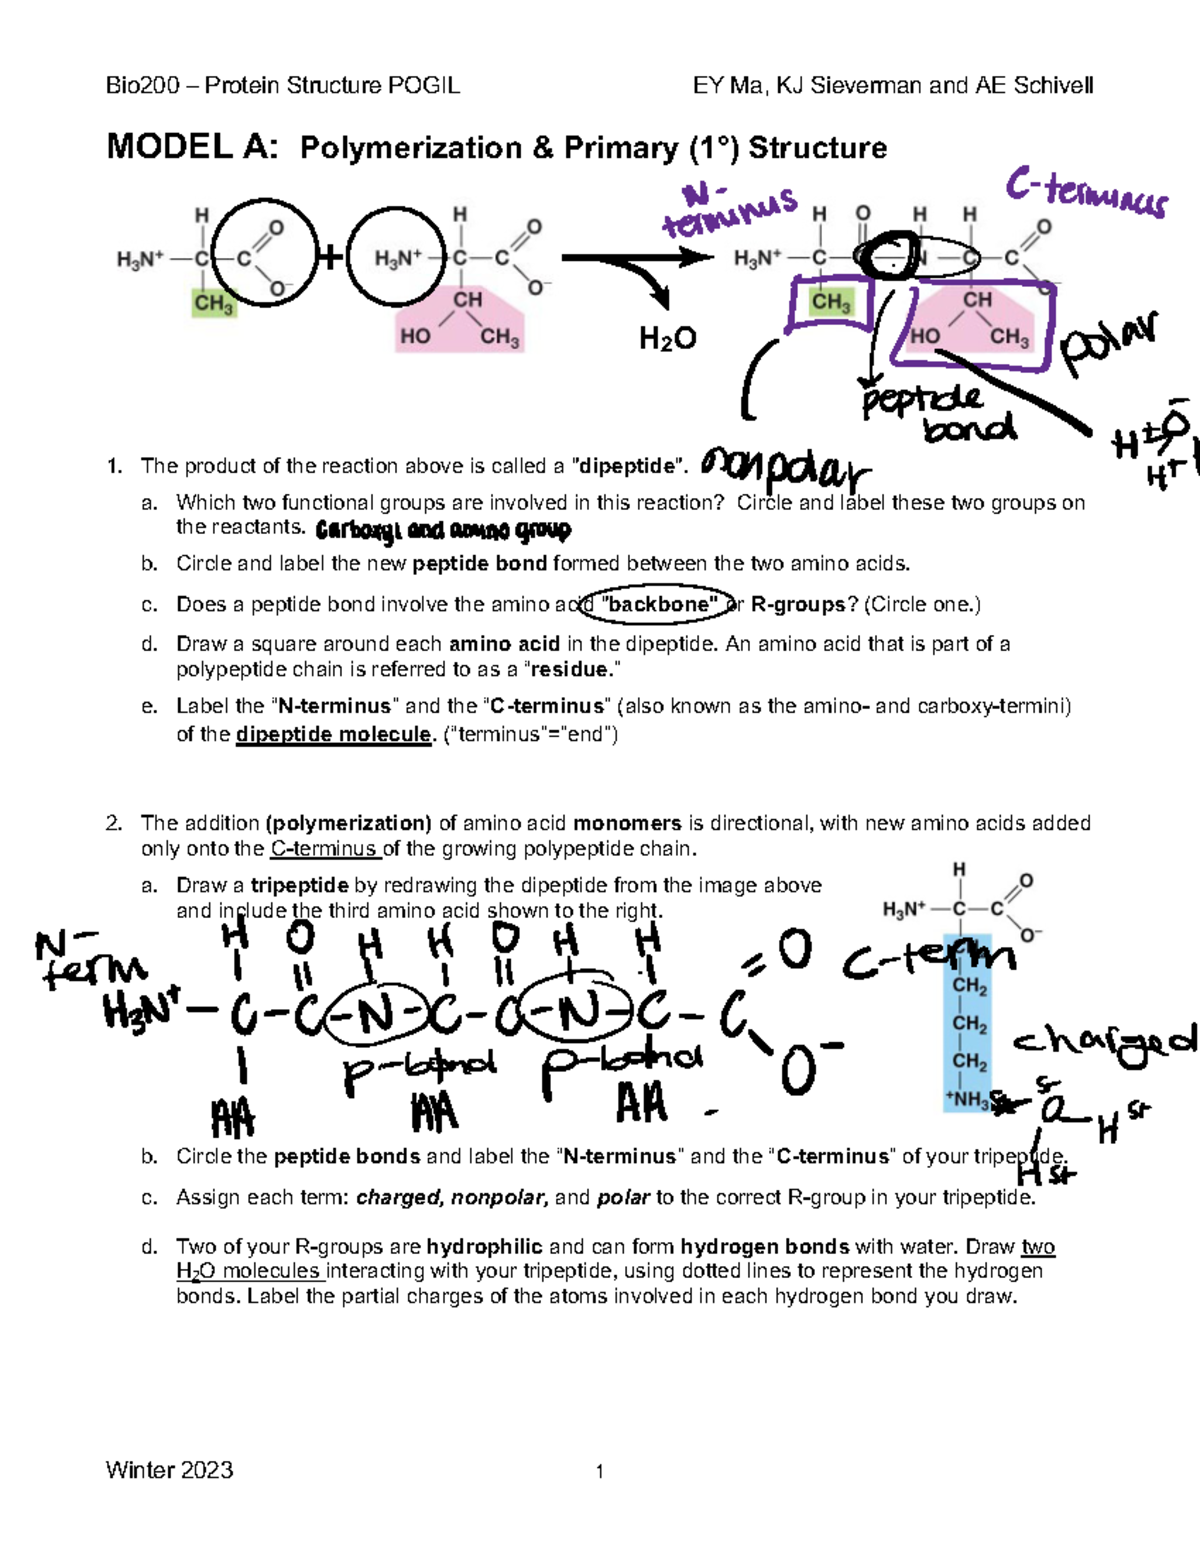 Bio200 – Protein Structure POGIL EY Ma, KJ Sieverman and AE Schivell
MODEL A: Polymerization & Primary (1°) Structure
N-terminus
C-terminus
H O H O H O H H O
H₃N⁺ —C—C + H₃N⁺ —C—C H₃N⁺ —C— N —C—C
O⁻ O⁻
CH₃ CH CH₃ CH
HO CH₃ H₂O HO CH₃
polar
peptide bond
H⁺
H⁺
1. The product of the reaction above is called a "dipeptide". nonpolar
a. Which two functional groups are involved in this reaction? Circle and label these two groups on
the reactants. Carboxyl and amino group
b. Circle and label the new peptide bond formed between the two amino acids.
c. Does a peptide bond involve the amino acid "backbone" or R-groups? (Circle one.)
d. Draw a square around each amino acid in the dipeptide. An amino acid that is part of a
polypeptide chain is referred to as a "residue."
e. Label the "N-terminus" and the "C-terminus" (also known as the amino- and carboxy-termini)
of the dipeptide molecule. ("terminus"="end")
2. The addition (polymerization) of amino acid monomers is directional, with new amino acids added
only onto the C-terminus of the growing polypeptide chain.
a. Draw a tripeptide by redrawing the dipeptide from the image above
and include the third amino acid shown to the right.
H O
H₃N⁺ —C—C
O⁻
CH₂
CH₂
CH₂
⁺NH₃
N-term
H O H H O H H =O
H₃N⁺ – C – C – N – C – C – N – C – C
O⁻
p-bond p-bond
AA AA AA
C-term
charged
H
H
b. Circle the peptide bonds and label the "N-terminus" and the "C-terminus" of your tripeptide.
c. Assign each term: charged, nonpolar, and polar to the correct R-group in your tripeptide.
d. Two of your R-groups are hydrophilic and can form hydrogen bonds with water. Draw two
H₂O molecules interacting with your tripeptide, using dotted lines to represent the hydrogen
bonds. Label the partial charges of the atoms involved in each hydrogen bond you draw.
Winter 2023 1